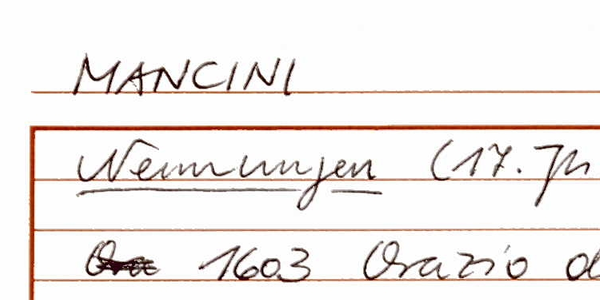 MANCINI
Nennungen (17. Jh
1603 Orazio d